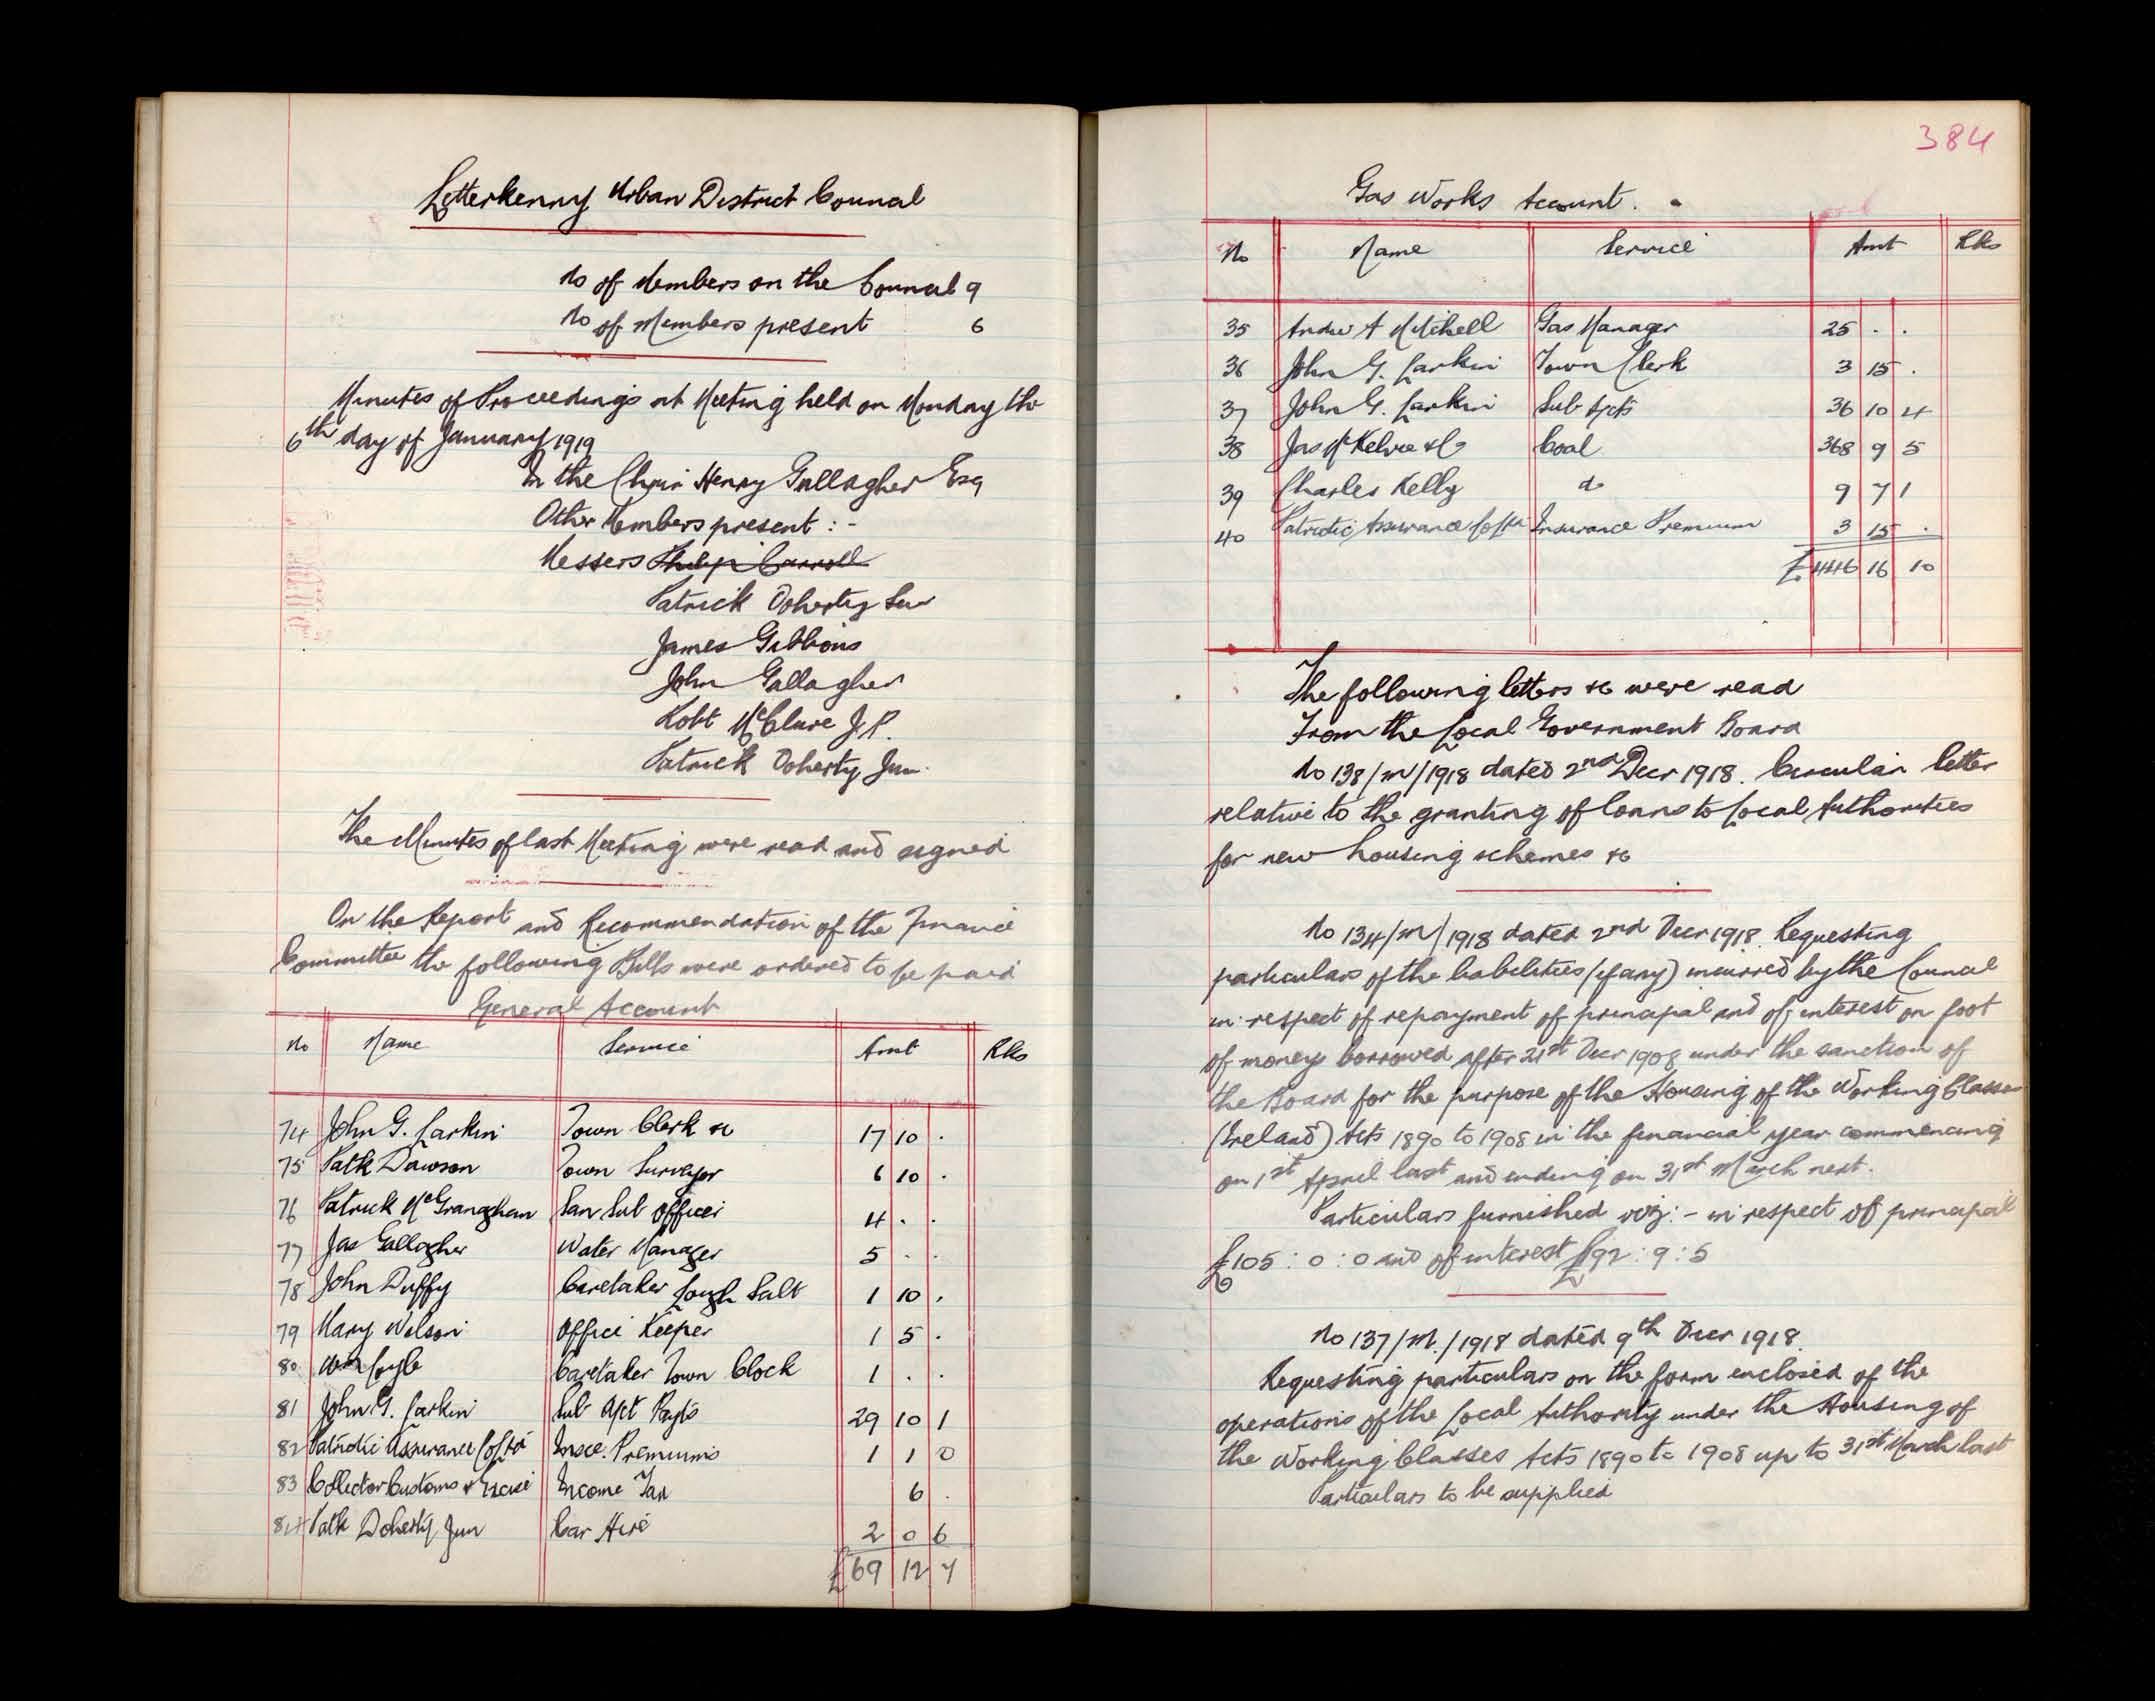 Letterkenny Urban District Council
No of Members on the Council 9
No of Members present 6
Minutes of Proceedings at Meeting held on Monday the
6th day of January 1919
In the Chair Henry Gallagher Esq
Other Members present : -
Messers Philip Carroll
Patrick Doherty Senr
James Gibbons
John Gallagher
Robt McClure J.P.
Patrick Doherty Jun.
The Minutes of last Meeting were read and signed
On the Report and Recommendation of the Finance
Committee the following Bills were ordered to be paid
General Account
No Name Service Amt Rks
74 John G. Larkin Town Clerk &c 17 10 .
75 Patk Dawson Town Surveyor 6 10 .
76 Patrick McGranaghan San Sub Officer 4 . .
77 Jas Gallagher Water Manager 5 . .
78 John Duffy Caretaker Lough Salt 1 10 .
79 Mary Wilson Office Keeper 1 5 .
80 Wm Coyle Caretaker Town Clock 1 . .
81 John G. Larkin Sub Acct Payts 29 10 1
82 Patriotic Assurance Co Ltd Insce. Premiums 1 1 0
83 Collector Customs & Excise Income Tax 6 .
84 Patk Doherty Jun Car Hire 2 0 6
£69 12 7
384
Gas Works Account.
No Name Service Amt Rks
35 Andw A Mitchell Gas Manager 25 . .
36 John G. Larkin Town Clerk 3 15 .
37 John G. Larkin Sub Accts 36 10 4
38 Jas McKelvie & Co Coal 368 9 5
39 Charles Kelly do 9 7 1
40 Patriotic Assurance Co Ltd Insurance Premium 3 15 .
£446 16 10
The following letters &c were read
From the Local Government Board
No 138/m/1918 dated 2nd Decr 1918. Circular letter
relative to the granting of loans to Local Authorities
for new housing schemes &c
No 134/m/1918 dated 2nd Decr 1918. Requesting
particulars of the liabilities (if any) incurred by the Council
in respect of repayment of principal and of interest on foot
of moneys borrowed after 21st Decr 1908 under the sanction of
the Board for the purpose of the Housing of the Working Classes
(Ireland) Acts 1890 to 1908 in the financial year commencing
on 1st April last and ending on 31st March next.
Particulars furnished viz: - in respect of principal
£105 : 0 : 0 and of interest £92 : 9 : 5
No 137/m./1918 dated 9th Decr 1918.
Requesting particulars on the form enclosed of the
operations of the Local Authority under the Housing of
the Working Classes Acts 1890 to 1908 up to 31st March last
Particulars to be supplied